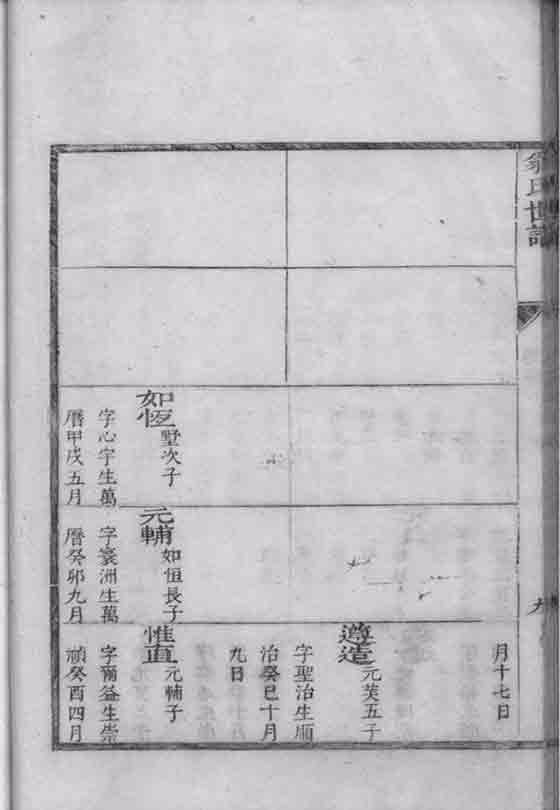 翁氏世譜
九
如恆 墅次子
字心宇生萬
曆甲戌五月
元輔 如恒長子
字寰洲生萬
曆癸卯九月
月十七日
遵造 元芙五子
字聖治生順
治癸巳十月
九日
惟直 元輔子
字爾益生崇
禎癸酉四月